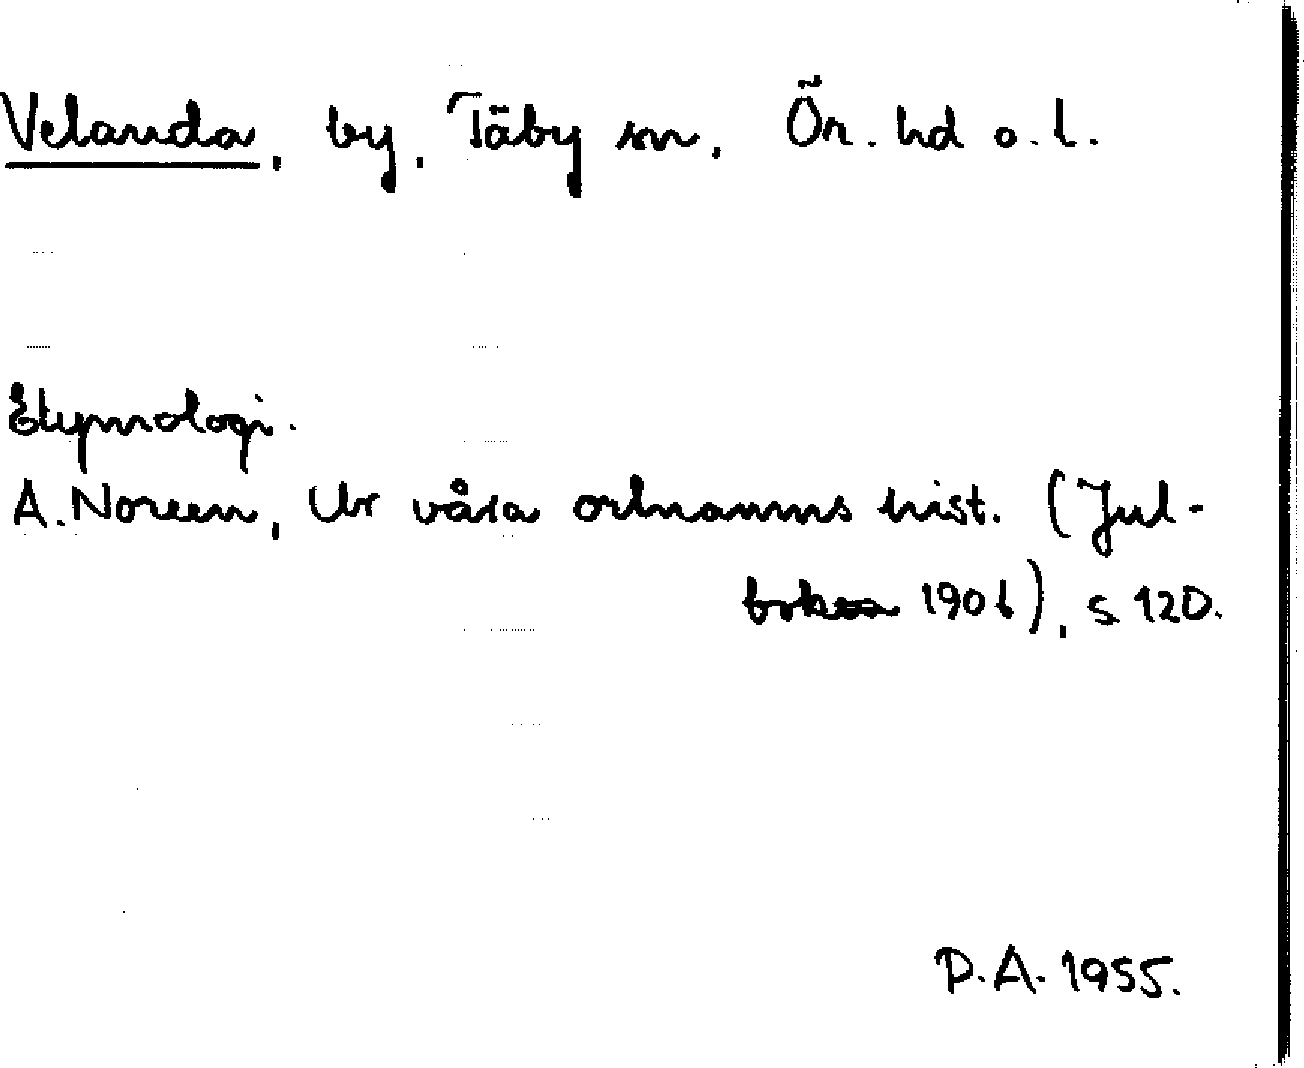 Velanda, by, Täby sn, Ör. hd o. l.
Etymologi.
A. Noreen, Ur våra ortnamns hist. (Jul-
boken 1906), s 120.
P.A. 1955.